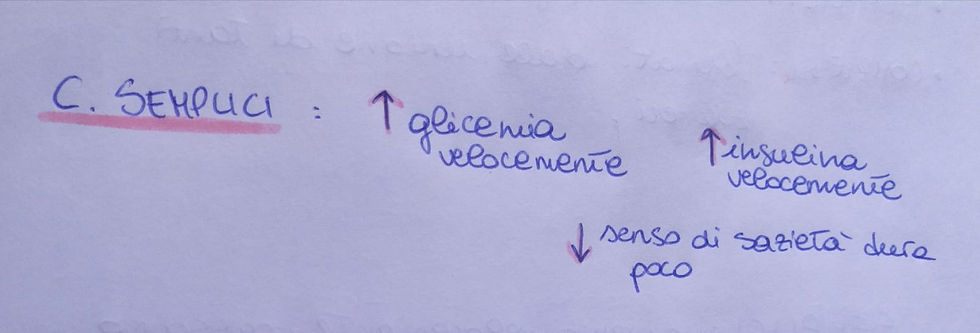 C. SEMPLICI : ↑ glicemia
velocemente
↑ insulina
velocemente
↓ senso di sazietà dura
poco